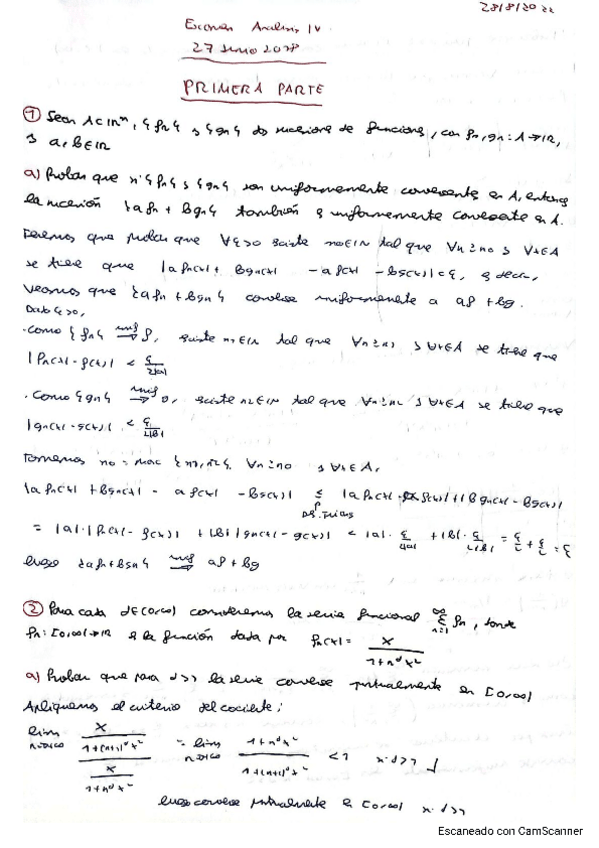 28/8/2022
Examen Analisis IV
27 Junio 2018
PRIMERA PARTE
① Sean A⊂ℝᵐ, {fn} y {gn} dos sucesiones de funciones, con fn, gn: A→ℝ,
y a, b∈ℝ
a) Probar que si {fn} y {gn} son uniformemente convergente en A, entonces
la sucesión {afn + bgn} también es uniformemente convergente en A.
Tenemos que probar que ∀ξ>0 existe n₀∈ℕ tal que ∀n≥n₀ y ∀x∈A
se tiene que |a fn(x) + bgn(x) - af(x) - bg(x)| < ξ, es decir,
veamos que {afn + bgn} converge uniformemente a af + bg.
Dado ξ>0,
· Como {fn} unif→ f, existe n₁∈ℕ tal que ∀n≥n₁ y ∀x∈A se tiene que
|fn(x) - f(x)| < ξ/2|a|
· Como {gn} unif→ g, existe n₂∈ℕ tal que ∀n≥n₂ y ∀x∈A se tiene que
|gn(x) - g(x)| < ξ/2|b|
Tomemos n₀ = max {n₁, n₂}. ∀n≥n₀ y ∀x∈A,
|a fn(x) + bgn(x) - a f(x) - bg(x)| ≤ |a fn(x) - a f(x)| + |bgn(x) - bg(x)|
= |a|·|fn(x) - f(x)| + |b| |gn(x) - g(x)| < |a|·ξ/2|a| + |b|·ξ/2|b| = ξ/2 + ξ/2 = ξ
luego {afn + bgn} unif→ af + bg
② Para cada α∈(0,∞) consideremos la serie funcional ∞Σn=1 fn, donde
fn: [0,∞)→ℝ es la función dada por fn(x) = x/1+n^α x²
a) Probar que para α>1 la serie converge puntualmente en [0,∞)
Apliquemos el criterio del cociente:
lim n→∞ (x/1+(n+1)^α x²)/(x/1+n^α x²) = lim n→∞ 1+n^α x²/1+(n+1)^α x² < 1 si α>1
luego converge puntualmente en [0,∞) si α>1
Escaneado con CamScanner